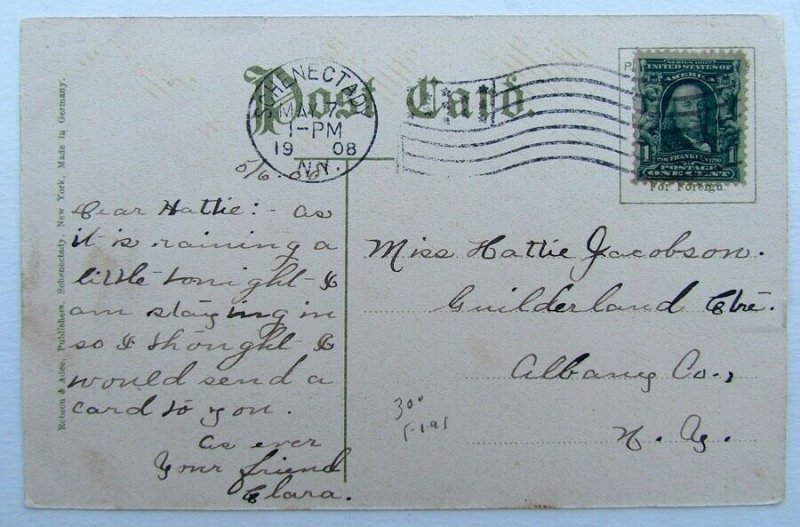 Post Card.
SCHENECTADY
MAY 7
1-PM
19 08
N.Y.
SERIES 1902
UNITED STATES OF
AMERICA
1 FRANKLIN 1
POSTAGE
ONE CENT
For Foreign
5/6.08
Dear Hattie:- as
it is raining a
little tonight I
am staying in
so I thought I
would send a
card to you.
As ever
Your friend
Clara.
Miss Hattie Jacobson.
Guilderland Ctre.
Albany Co.,
N. Y.
300
F-195
Robson & Adee, Publishers, Schenectady, New York, Made in Germany.